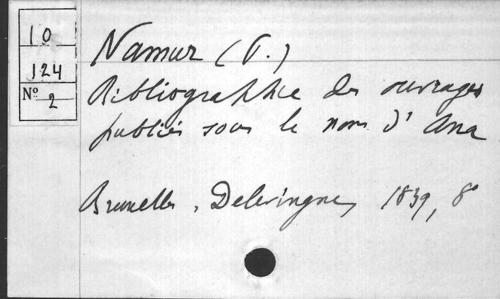 10
124
Nº 2
Namur (P.)
Bibliographie des ouvrages
publiés sous le nom d'Ana
Bruxelles, Delevingne, 1839, 8º